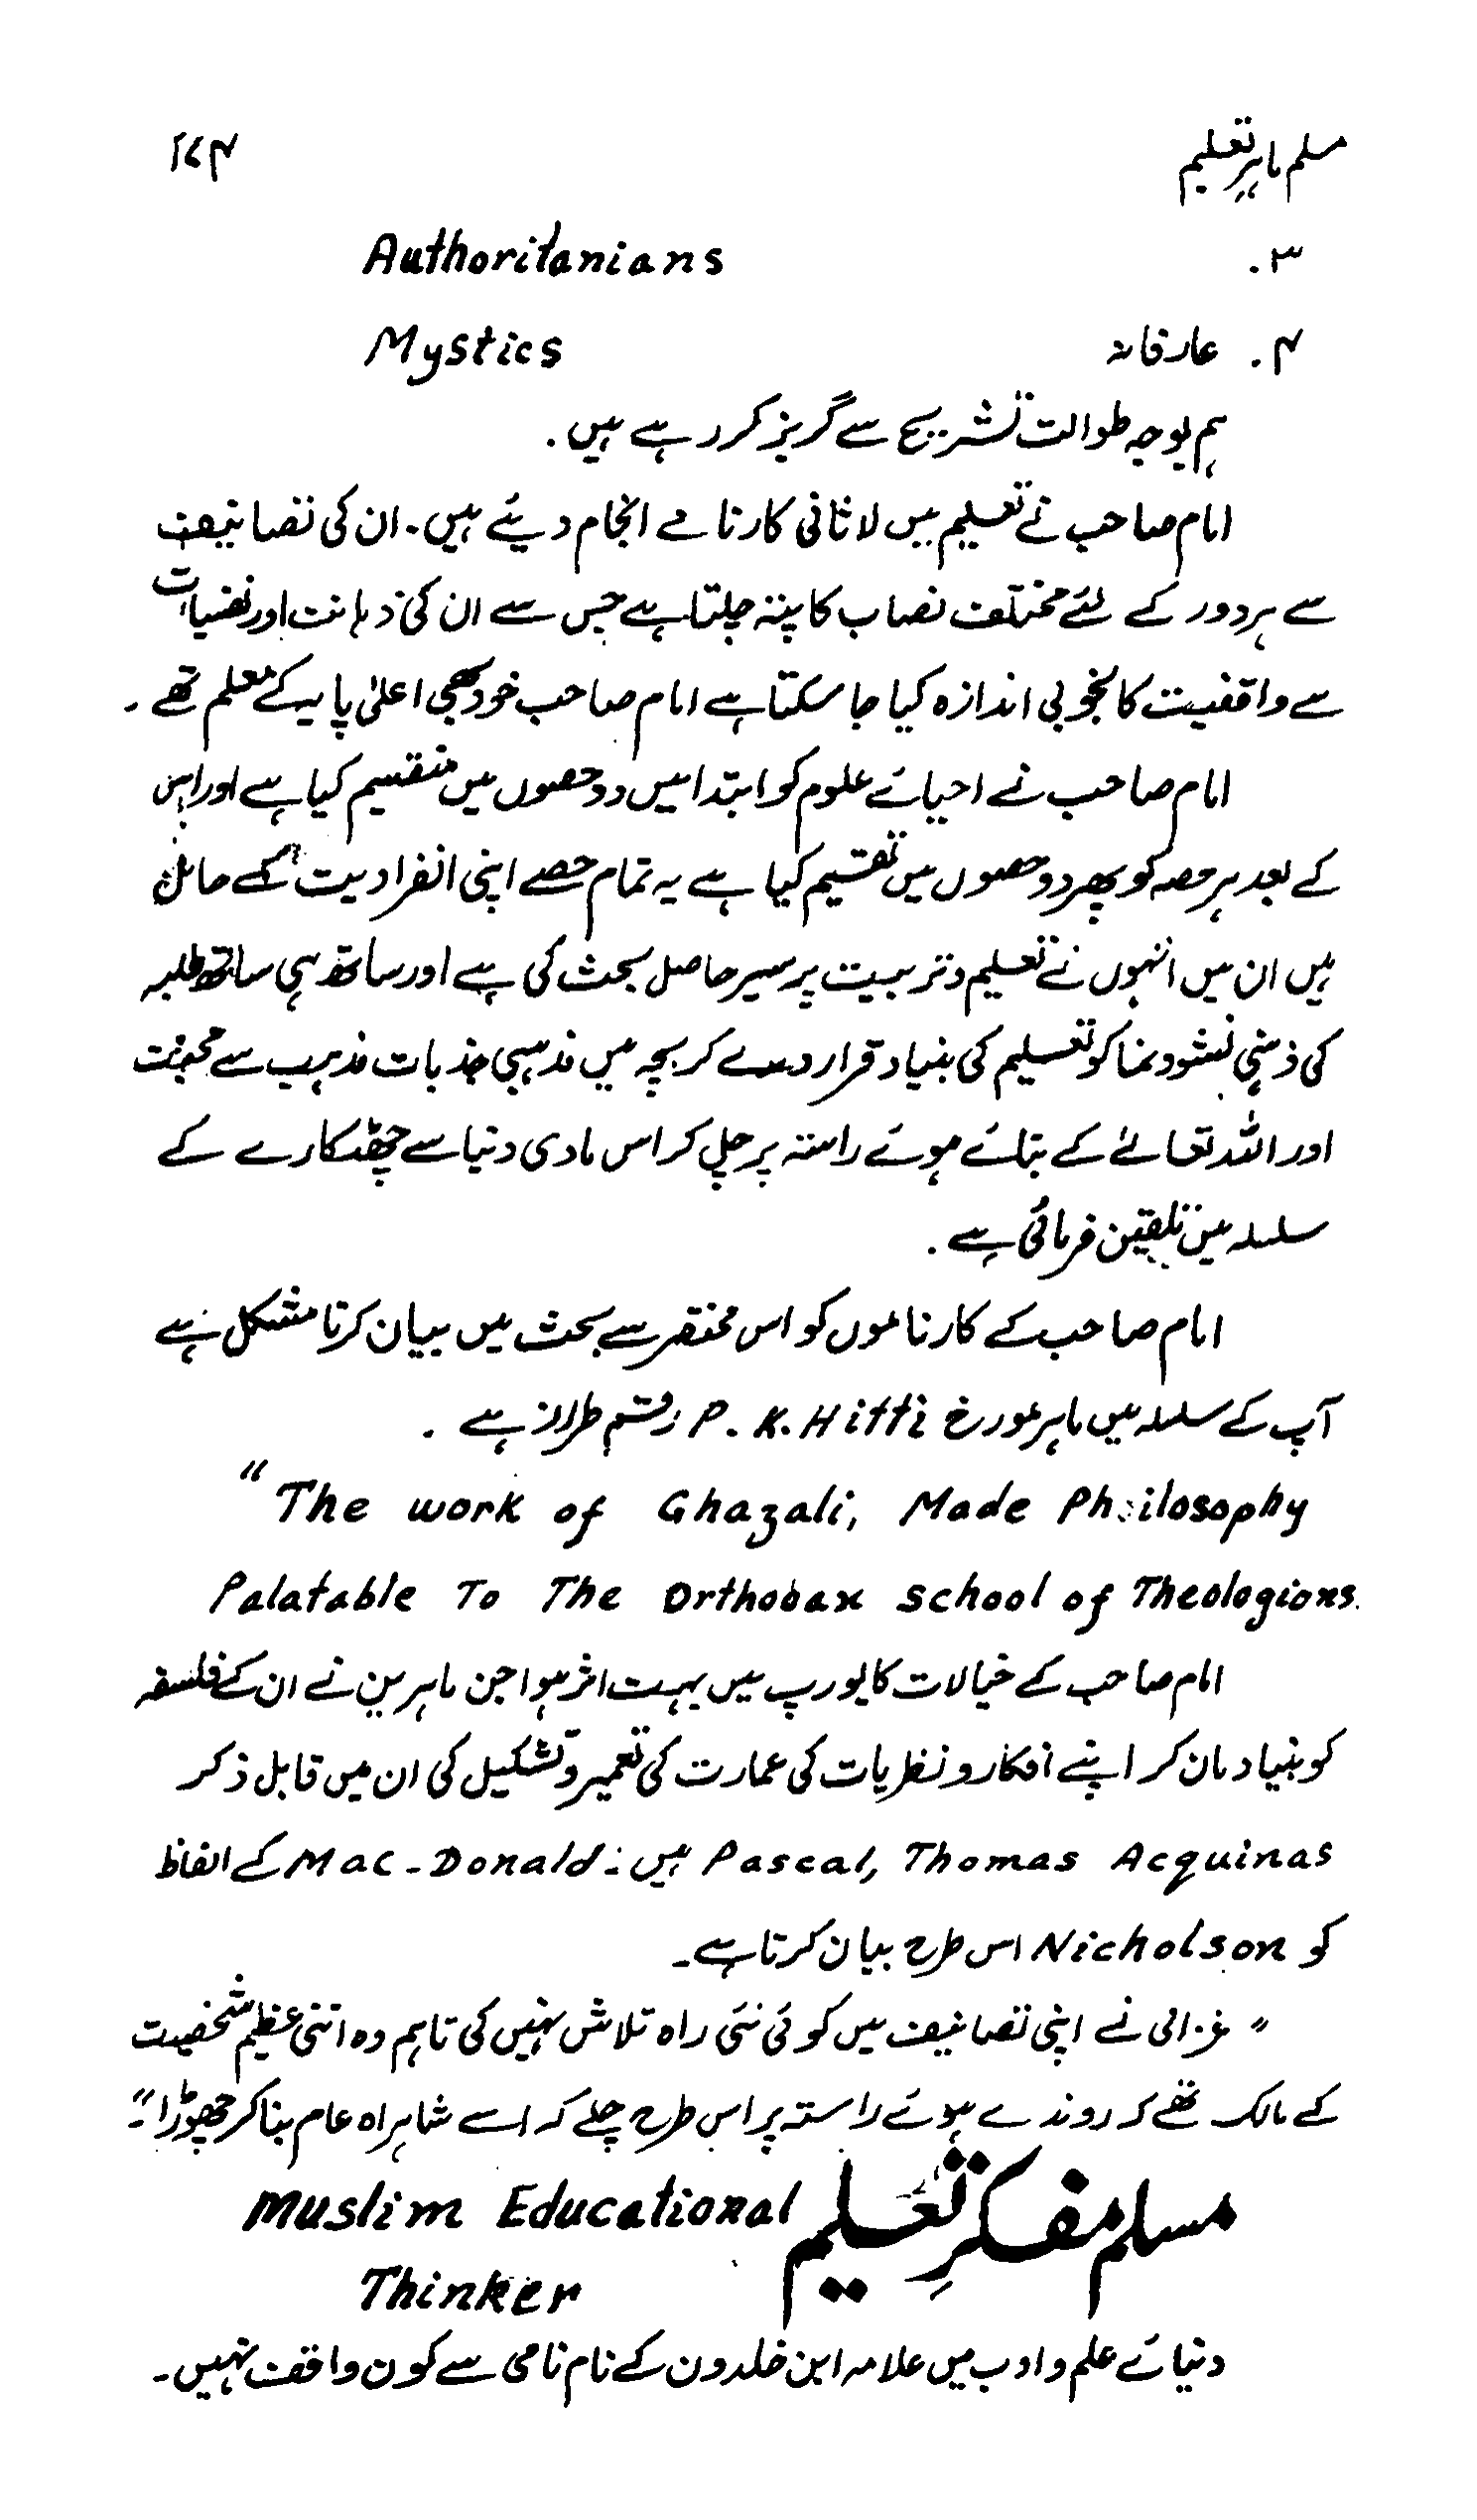 مسلم ماہرِ تعلیم ۱۷۴
۳. Authoritanians
۴. عارفانہ Mystics
ہم بوجہ طوالت تشریح سے گریز کر رہے ہیں.
امام صاحب نے تعلیم میں لاثانی کارنامے انجام دیئے ہیں. ان کی تصانیف
سے ہر دور کے لئے مختلف نصاب کا پتہ چلتا ہے جس سے ان کی ذہانت اور نفسیات
سے واقفیت کا بخوبی اندازہ کیا جا سکتا ہے امام صاحب خود بھی اعلیٰ پایہ کے معلم تھے۔
امام صاحب نے احیائے علوم کو ابتدا میں دو حصوں میں منقسم کیا ہے اور اس
کے بعد ہر حصہ کو پھر دو حصوں میں تقسیم کیا ہے یہ تمام حصے اپنی انفرادیت کے حامل
ہیں ان میں انہوں نے تعلیم و تربیت پر سیر حاصل بحث کی ہے اور ساتھ ہی ساتھ طلبہ
کی ذہنی نشوونما کو تعلیم کی بنیاد قرار دے کر بچہ میں مذہبی جذبات مذہب سے محبت
اور اللہ تعالےٰ کے بتائے ہوئے راستہ پر چل کر اس مادی دنیا سے چھٹکارے کے
سلسلہ میں تلقین فرمائی ہے.
امام صاحب کے کارناموں کو اس مختصر سے بحث میں بیان کرنا مشکل ہے
آپ کے سلسلہ میں ماہر مورخ P. K. Hitti رقم طراز ہے.
"The work of Ghazali, Made Philosophy
Palatable To The Orthodax School of Theologions.
امام صاحب کے خیالات کا یورپ میں بہت اثر ہوا جن ماہرین نے ان کے فلسفہ
کو بنیاد مان کر اپنے افکار و نظریات کی عمارت کی تعمیر و تشکیل کی ان میں قابل ذکر
Pascal, Thomas Acquinas ہیں۔ Mac-Donald کے الفاظ
کو Nicholson اس طرح بیان کرتا ہے۔
"غزالی نے اپنی تصانیف میں کوئی نئی راہ تلاش نہیں کی تاہم وہ اتنی عظیم شخصیت
کے مالک تھے کہ روندے ہوئے راستہ پر اس طرح چلے کہ اسے شاہراہ عام بنا کر چھوڑا"۔
مسلم مفکرِ تعلیم Muslim Educational
Thinker
دنیائے علم و ادب میں علامہ ابن خلدون کے نام نامی سے کون واقف نہیں۔